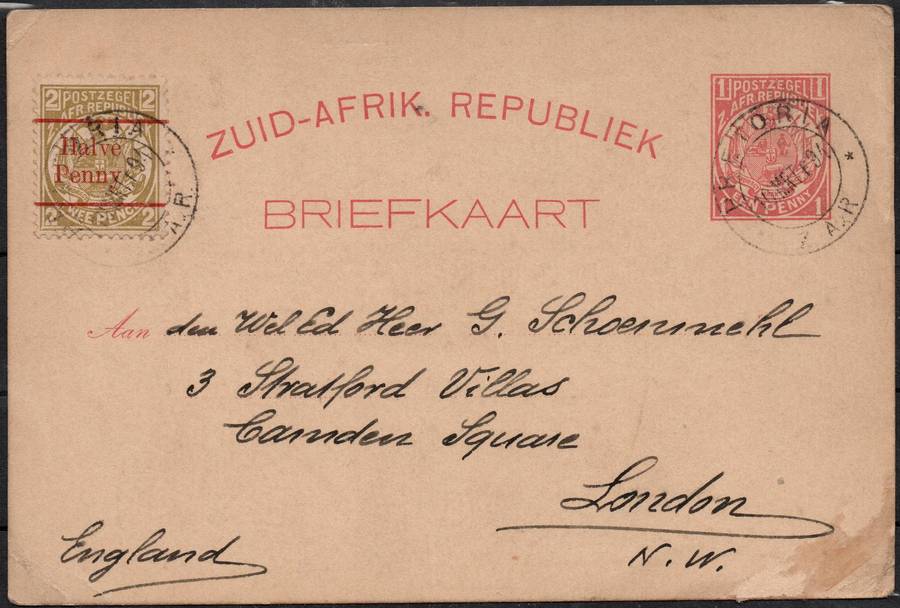 ZUID-AFRIK. REPUBLIEK
BRIEFKAART
2 POSTZEGEL 2
Z. AFR REPUBL
Halve
Penny
TWEE PENCE
2 2
1 POSTZEGEL 1
Z. AFR REPUBL
EEN PENNY 1
PRETORIA
Z. A. R.
Aan den Wel Ed Heer G. Schoenmehl
3 Stratford Villas
Camden Square
London
N. W.
England